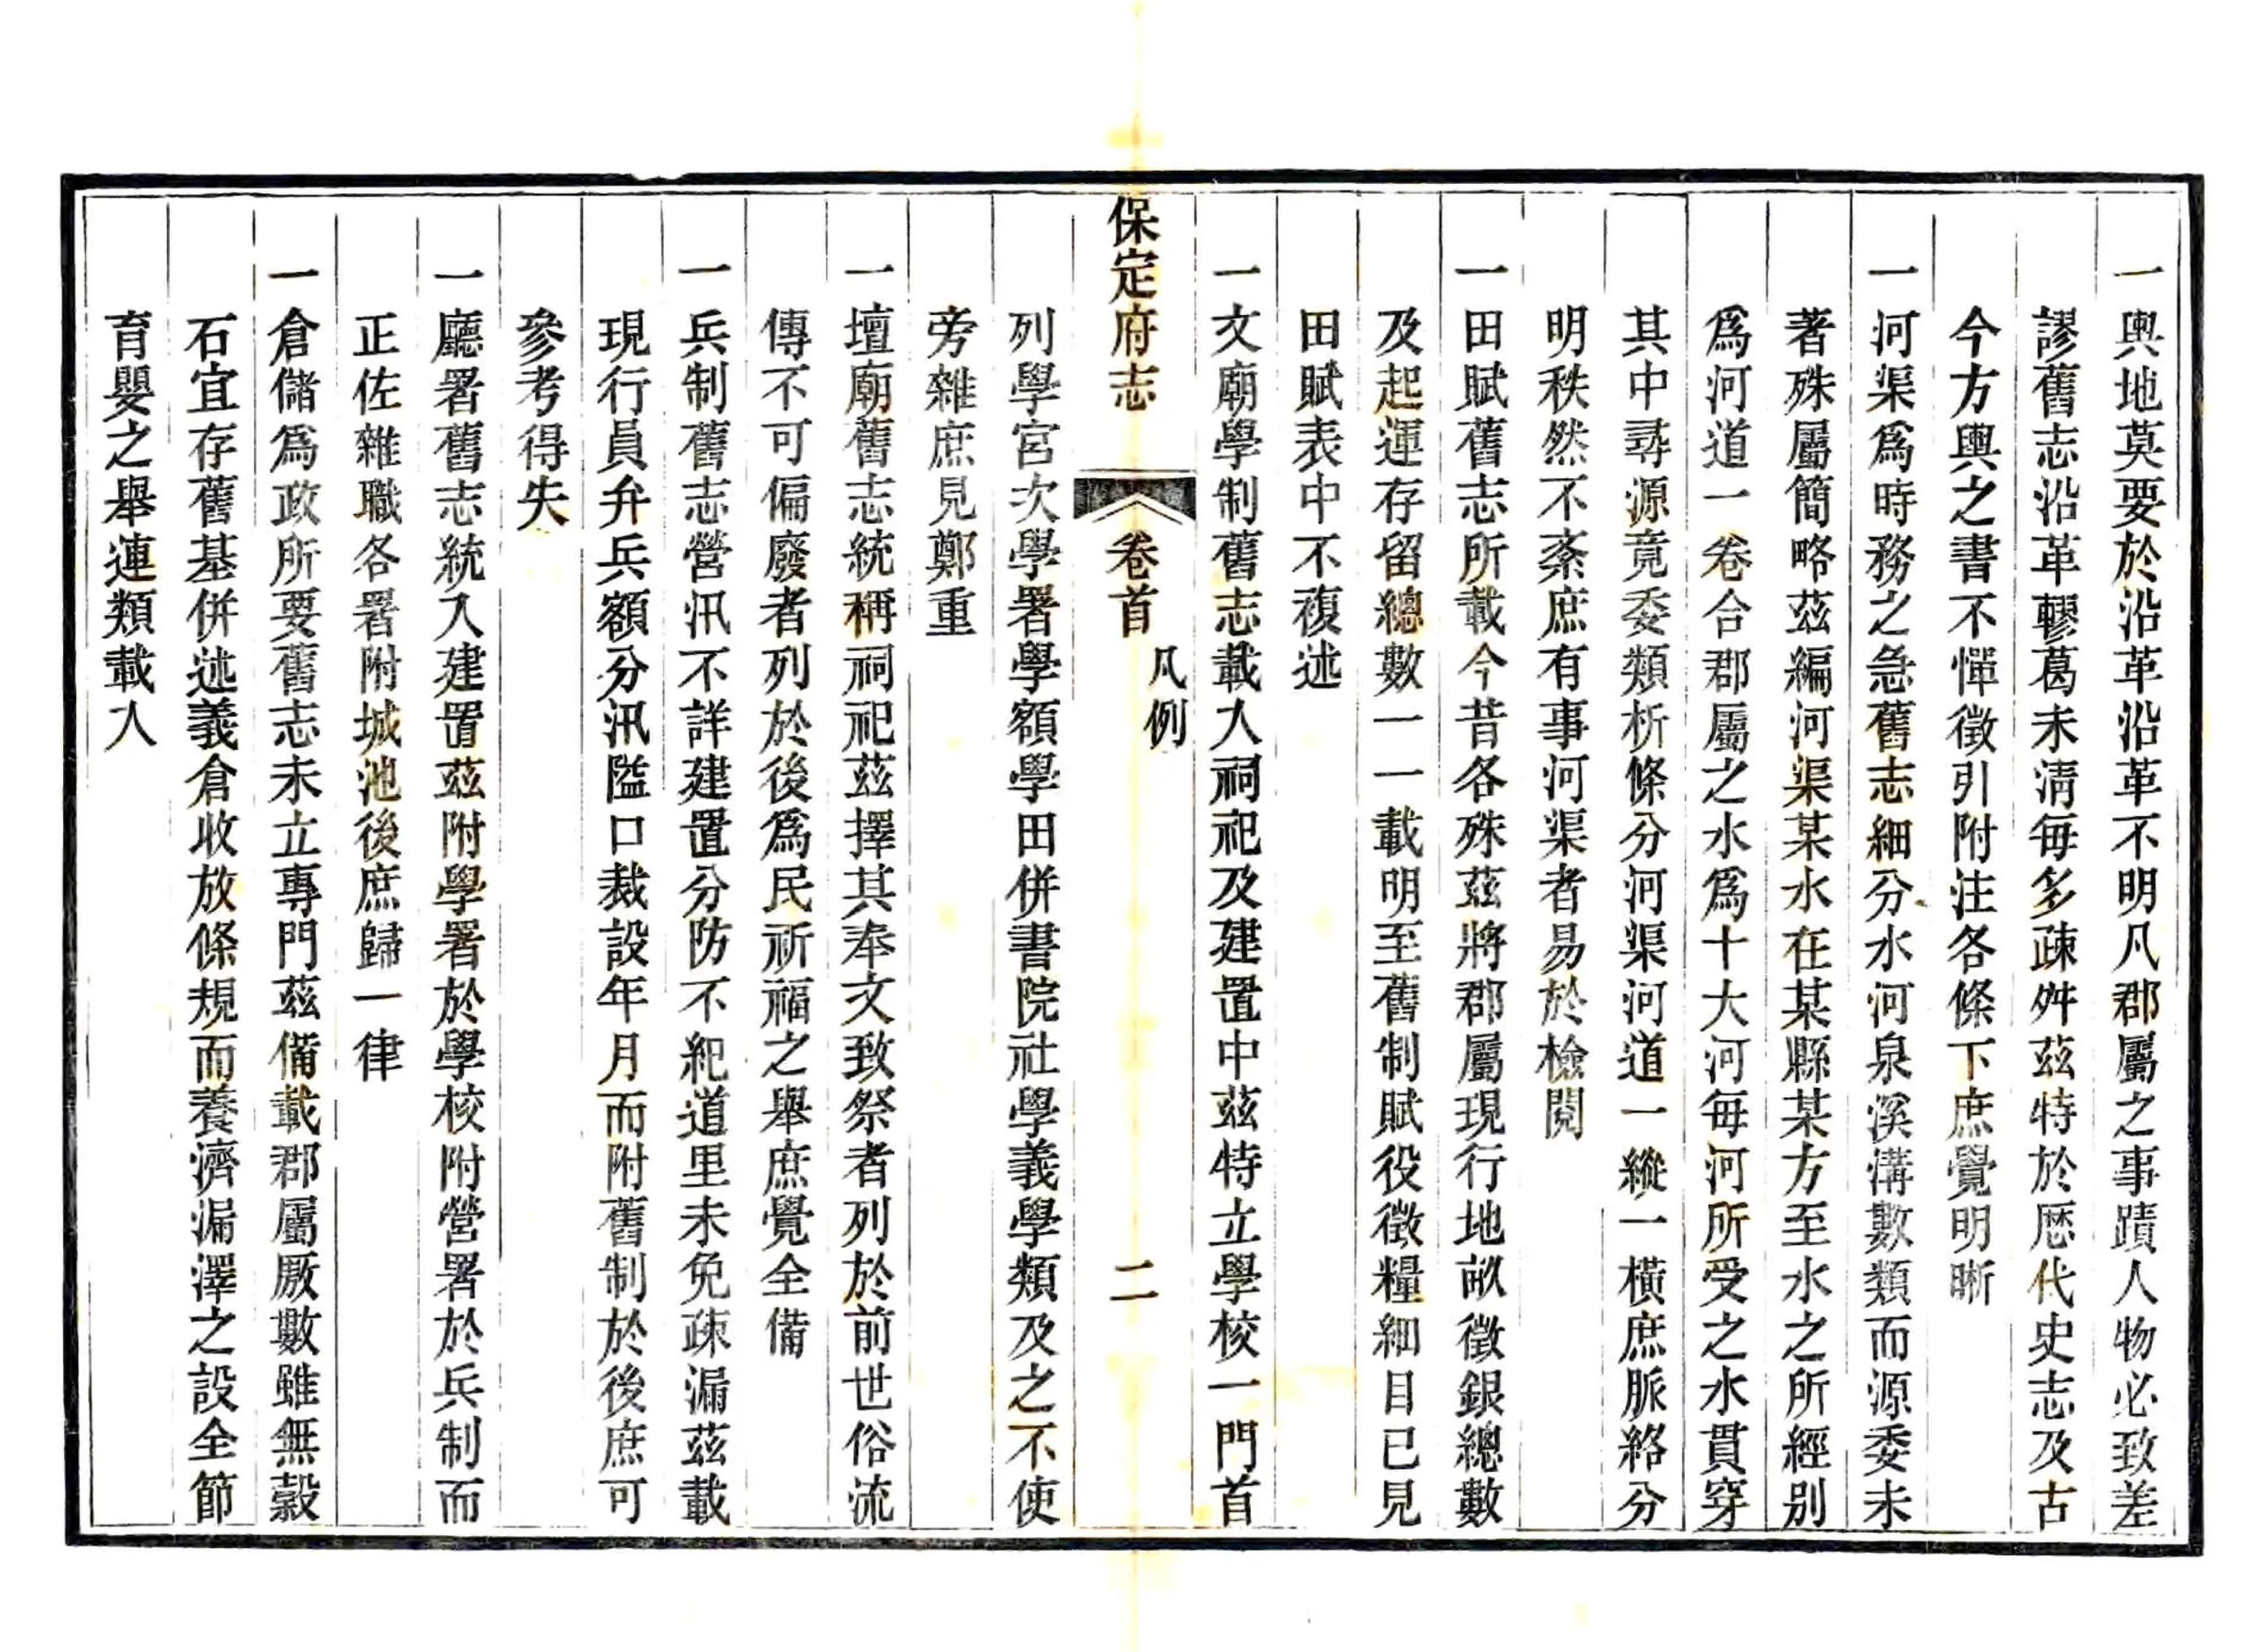 一輿地莫要於沿革沿革不明凡郡屬之事蹟人物必致差
謬舊志沿革轇葛未清每多疎舛茲特於歷代史志及古
今方輿之書不憚徵引附注各條下庶覺明晰
一河渠爲時務之急舊志細分水河泉溪溝數類而源委未
著殊屬簡略茲編河渠某水在某縣某方至水之所經別
爲河道一卷合郡屬之水爲十大河每河所受之水貫穿
其中尋源竟委類析條分河渠河道一縱一橫庶脈絡分
明秩然不紊庶有事河渠者易於檢閱
一田賦舊志所載今昔各殊茲將郡屬現行地畝徵銀總數
及起運存留總數一一載明至舊制賦役徵糧細目已見
田賦表中不複述
一文廟學制舊志載入祠祀及建置中茲特立學校一門首
保定府志 卷首 凡例 二
列學宮次學署學額學田併書院社學義學類及之不使
旁雜庶見鄭重
一壇廟舊志統稱祠祀茲擇其奉文致祭者列於前世俗流
傳不可偏廢者列於後爲民祈福之舉庶覺全備
一兵制舊志營汛不詳建置分防不紀道里未免疎漏茲載
現行員弁兵額分汛隘口裁設年月而附舊制於後庶可
參考得失
一廳署舊志統入建置茲附學署於學校附營署於兵制而
正佐雜職各署附城池後庶歸一律
一倉儲爲政所要舊志未立專門茲備載郡屬厫數雖無穀
石宜存舊基併述義倉收放條規而養濟漏澤之設全節
育嬰之舉連類載入